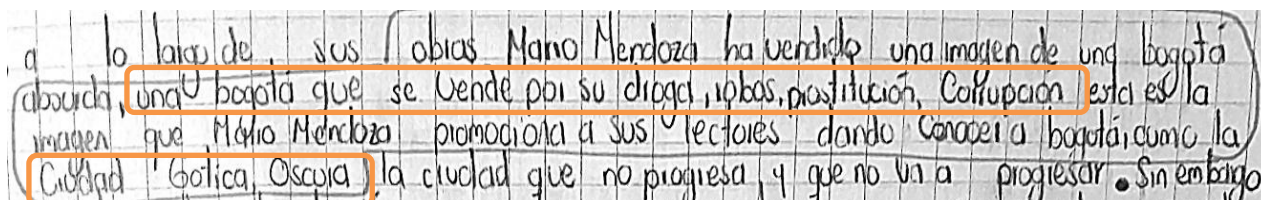 a lo largo de, sus obras Mario Mendoza ha vendido una imagen de una bogotá
absurda, una bogotá que se vende por su droga, robos, prostitución, Corrupción esta es la
imagen que Mario Mendoza promociona a sus lectores dando Conocer a bogotá, como la
Ciudad Gotica Oscura la ciudad que no progresa y que no va a progresar. Sin embargo